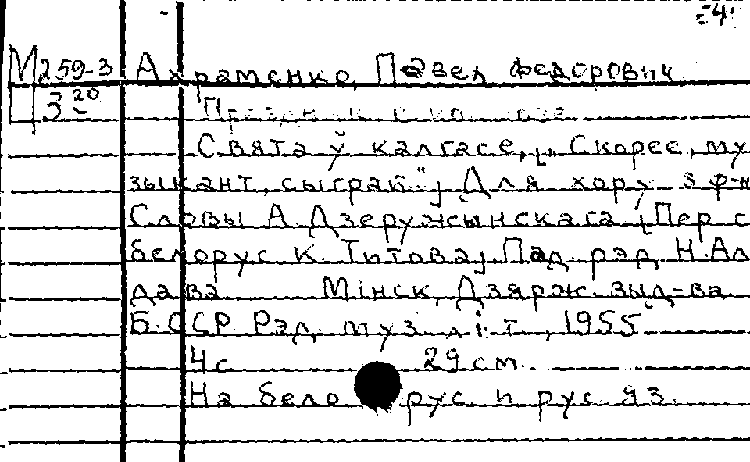 -4
М259-3 Ахраменко, Павел Федорович
Ц 3 20 Праздник в колхозе
Свята ў калгасе, „Скорее, му-
зыкант, сыграй"; Для хору з ф-н
Словы А Дзеружынскага; Пер с
белорус К Титова; Пад рэд. Н. Ал
дава Мінск, Дзярж. выд-ва
БССР Рэд. муз. літ., 1955
4с 29 см.
На белорус и рус яз.